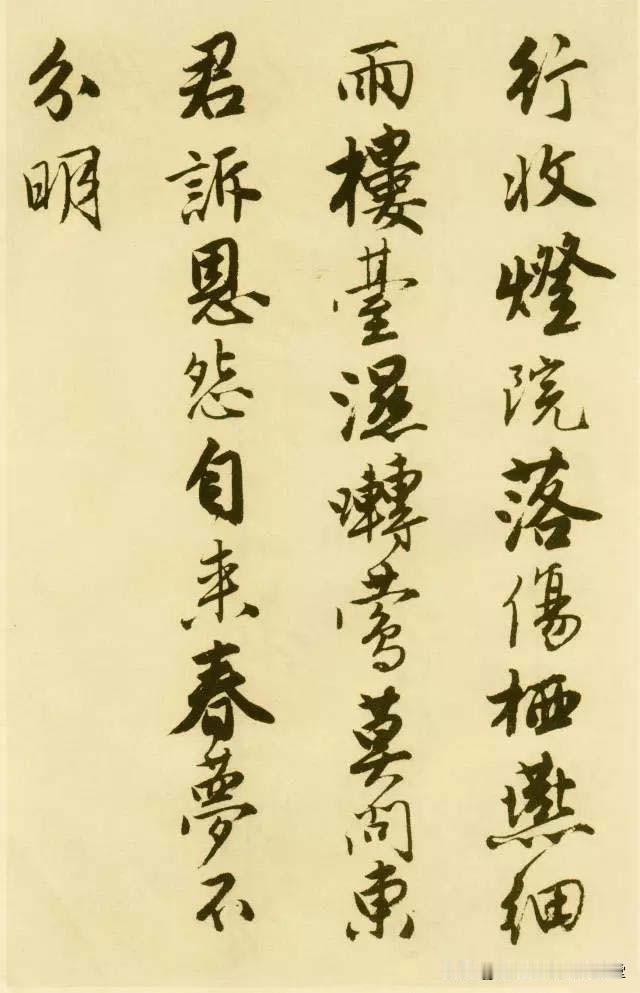 行收燈院落傷栖燕細
雨樓臺濕囀鶯莫問東
君訴恩怨自来春夢不
分明